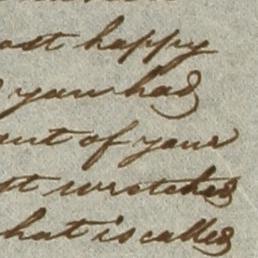 ost happy
you had
ent of your
st wretched
hat is called